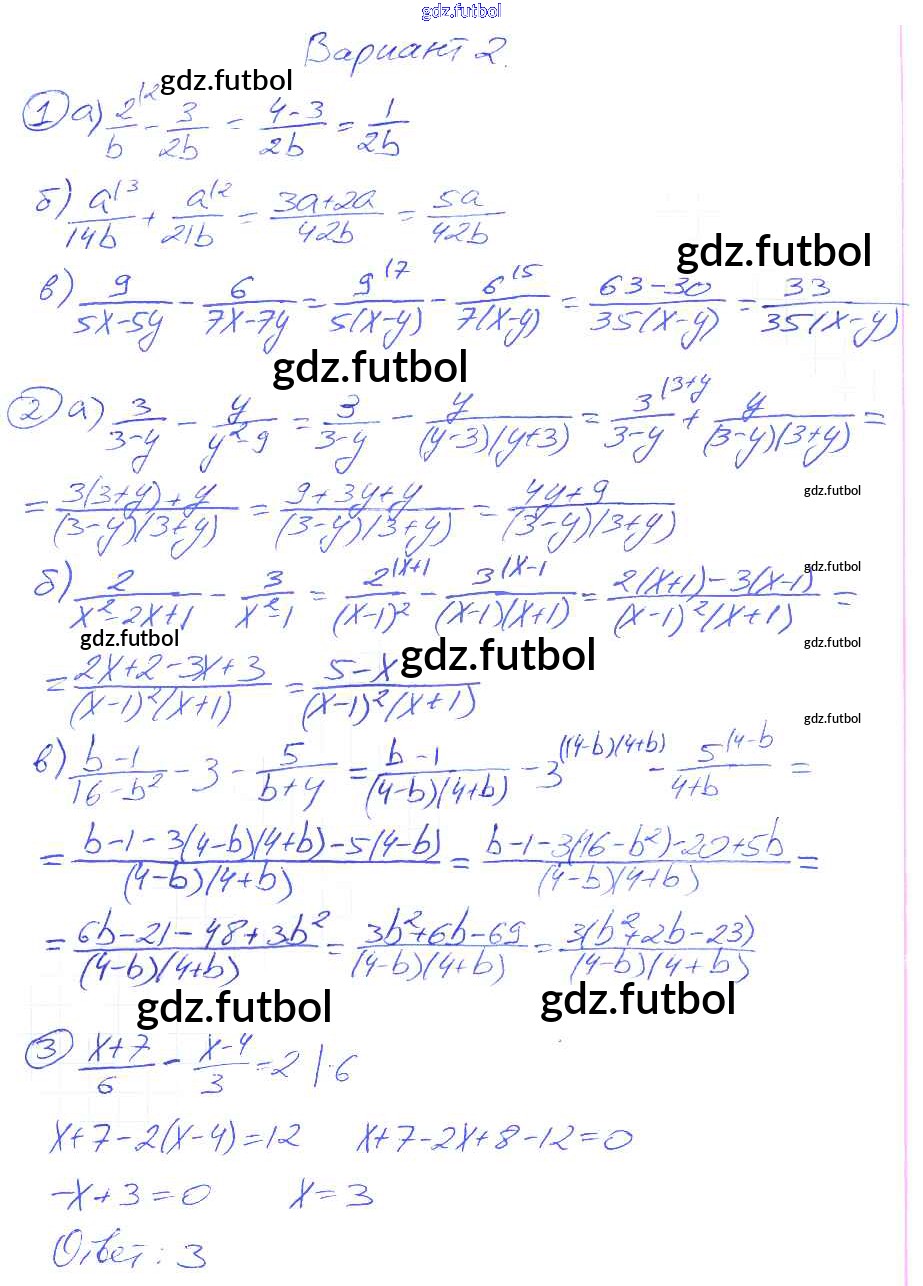 gdz.futbol
Вариант 2.
gdz.futbol
① а) 2^{|2}/b - 3/2b = (4-3)/2b = 1/2b
б) a^{|3}/14b + a^{|2}/21b = (3a+2a)/42b = 5a/42b
gdz.futbol
в) 9/(5x-5y) - 6/(7x-7y) = 9^{|7}/5(x-y) - 6^{|5}/7(x-y) = (63-30)/35(x-y) = 33/35(x-y)
gdz.futbol
② а) 3/(3-y) - y/(y²-9) = 3/(3-y) - y/(y-3)(y+3) = 3^{|3+y}/(3-y) + y/(3-y)(3+y) =
= (3(3+y)+y)/(3-y)(3+y) = (9+3y+y)/(3-y)(3+y) = (4y+9)/(3-y)(3+y)
gdz.futbol
gdz.futbol
б) 2/(x²-2x+1) - 3/(x²-1) = 2^{|x+1}/(x-1)² - 3^{|x-1}/(x-1)(x+1) = (2(x+1)-3(x-1))/(x-1)²(x+1) =
gdz.futbol
gdz.futbol
gdz.futbol
= (2x+2-3x+3)/(x-1)²(x+1) = (5-x)/(x-1)²(x+1)
gdz.futbol
в) (b-1)/(16-b²) - 3 - 5/(b+4) = (b-1)/(4-b)(4+b) - 3^{|(4-b)(4+b)} - 5^{|4-b}/(4+b) =
= (b-1-3(4-b)(4+b)-5(4-b))/(4-b)(4+b) = (b-1-3(16-b²)-20+5b)/(4-b)(4+b) =
= (6b-21-48+3b²)/(4-b)(4+b) = (3b²+6b-69)/(4-b)(4+b) = 3(b²+2b-23)/(4-b)(4+b)
gdz.futbol
gdz.futbol
③ (x+7)/6 - (x-4)/3 = 2 |·6
x+7-2(x-4)=12 x+7-2x+8-12=0
-x+3=0 x=3
Ответ: 3